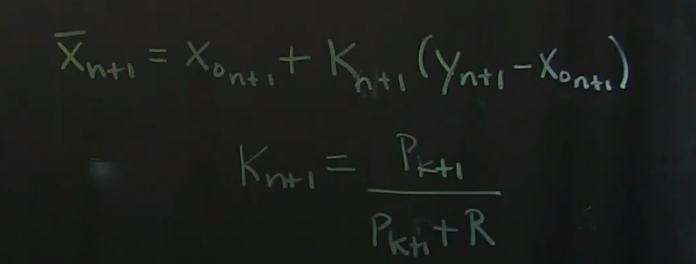 x̄ₙ₊₁ = x₀ₙ₊₁ + Kₙ₊₁ (yₙ₊₁ − x₀ₙ₊₁)
Kₙ₊₁ = Pₖ₊₁ / (Pₖ₊₁ + R)